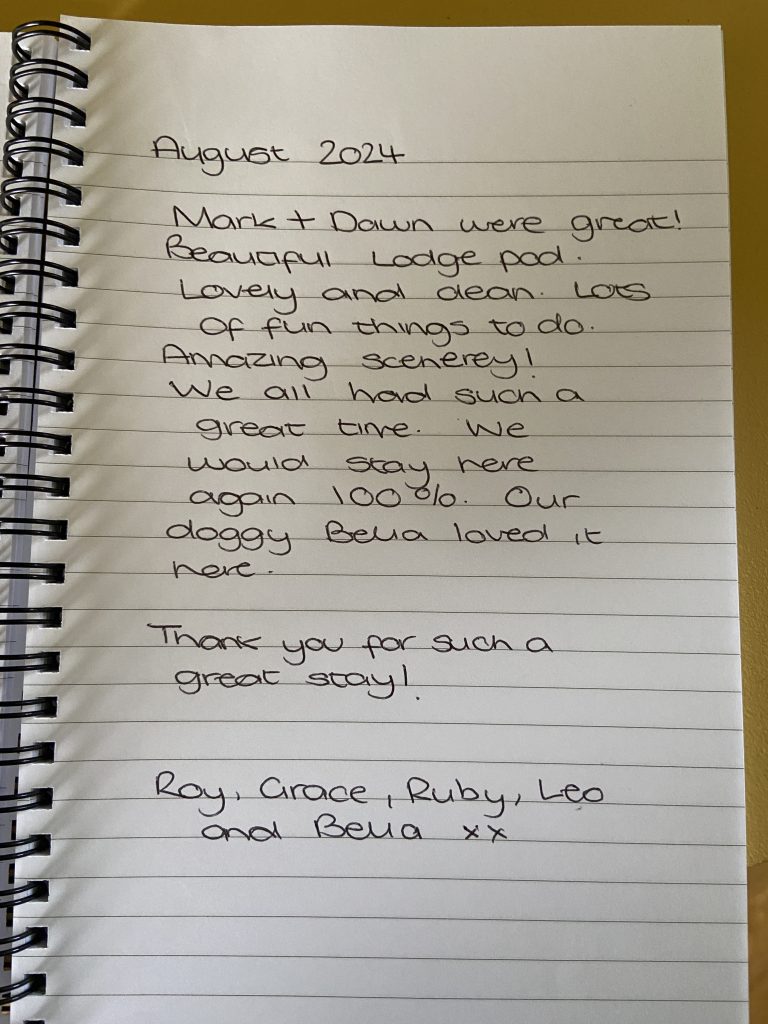 August 2024
Mark + Dawn were great!
Beautiful Lodge pod.
Lovely and clean. Lots
of fun things to do.
Amazing scenerey!
We all had such a
great time. We
would stay here
again 100%. Our
doggy Bella loved it
here.
Thank you for such a
great stay!
Roy, Grace, Ruby, Leo
and Bella xx